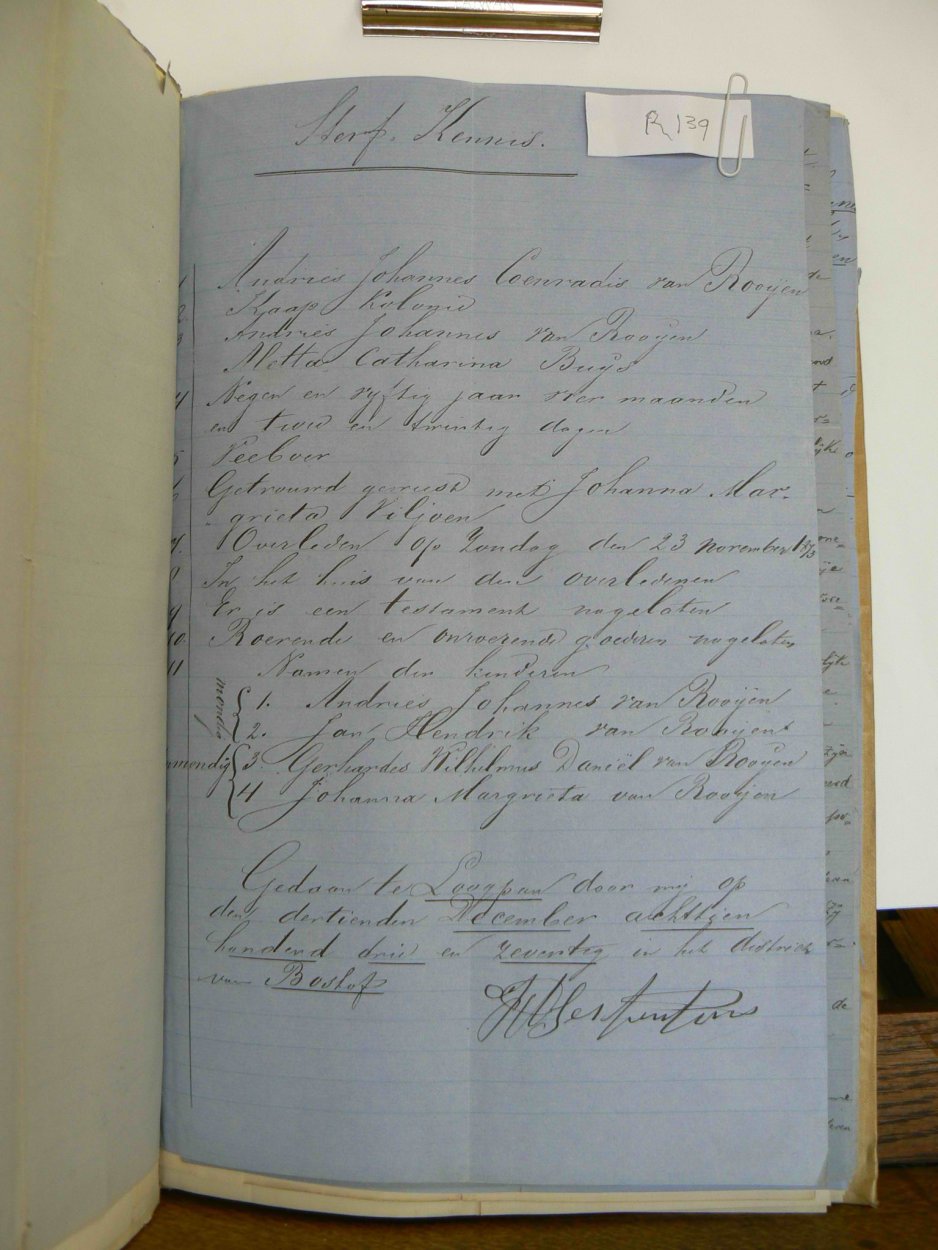 R 139
Sterf. Kennis.
1 Andries Johannes Coenradis van Rooijen
2 Kaap Kolonie
3 Andries Johannes van Rooyen
Metta Catharina Buys
4 Negen en vyftig jaar vier maanden
en twee en twintig dagen
5 Veeboer
6 Getrouwd geweest met Johanna Mar-
grieta Viljoen
7. Overleden op Zondag den 23 November 1873
8 In het huis van den overledenen
9 Er is een testament nagelaten
10. Roerende en onroerende goederen nagelaten
11 Namen der kinderen
1. Andries Johannes van Rooÿen
2. Jan Hendrik van Rooijen
3. Gerhardes Wilhelmus Daniël van Rooyen
4 Johanna Margrieta van Rooijen
Gedaan te Loogpan door my op
den dertienden December achttien
honderd drie en zeventig in het district
van Boshof